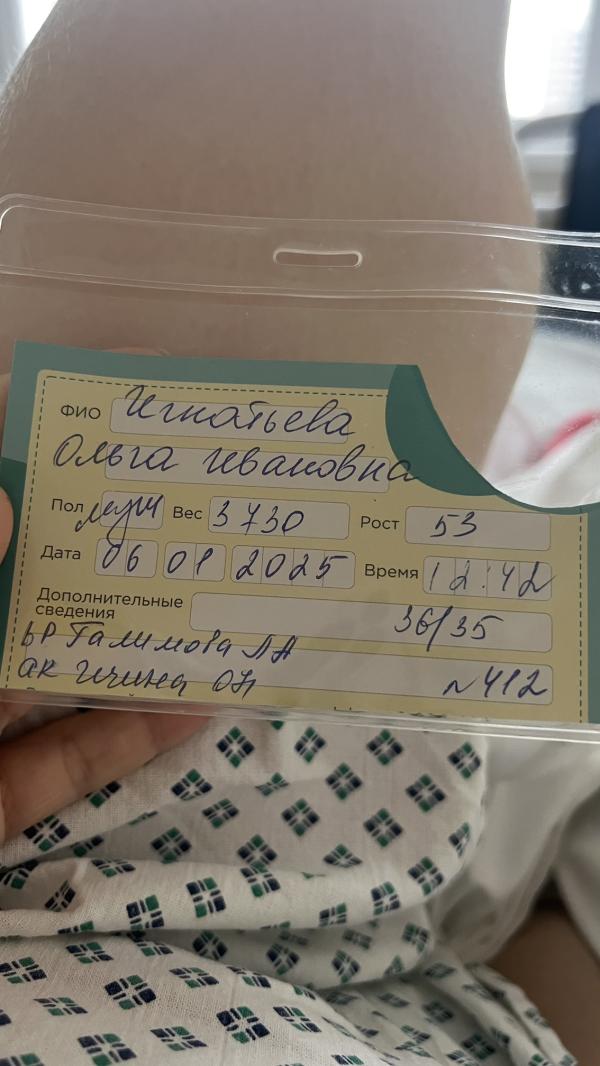 ФИО Игнатьева
Ольга Ивановна
Пол муж Вес 3730 Рост 53
Дата 06 01 2025 Время 12:42
Дополнительные
сведения 36/35
вр Галимова ЛА
ак Ичина ОН №412